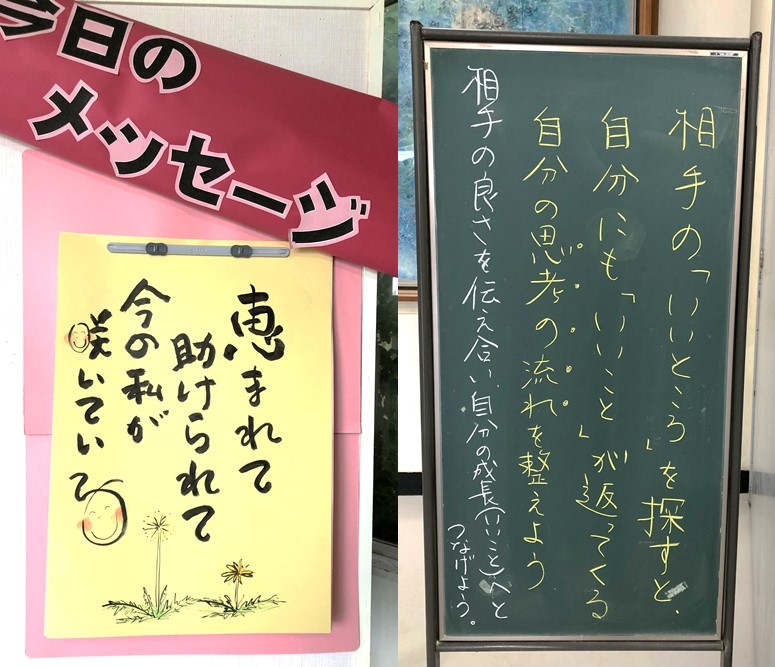 今日の
メッセージ
恵まれて
助けられて
今の私が
咲いている
相手の「いいところ」を探すと、
自分にも「いいこと」が返ってくる
自分の思考の流れを整えよう
相手の良さを伝え合い、自分の成長(いいこと)へと
つなげよう。